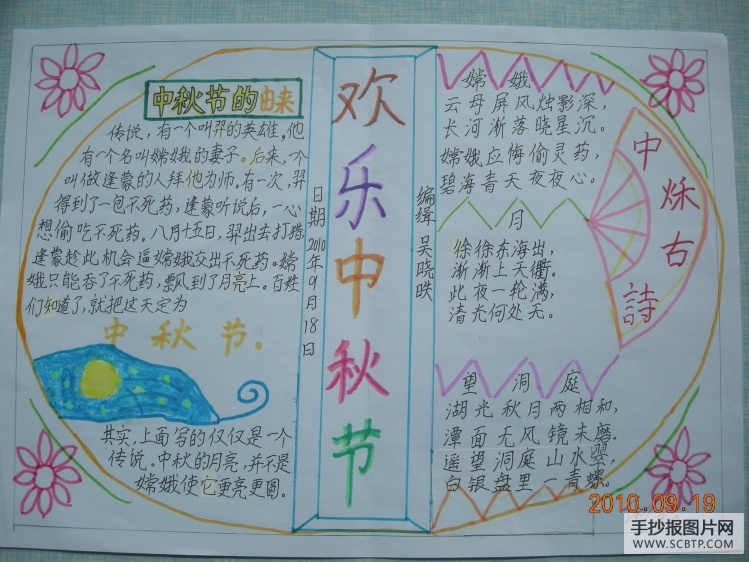 中秋节的由来
传说，有一个叫羿的英雄，他
有一个名叫嫦娥的妻子。后来，一个
叫做逢蒙的人拜他为师。有一次，羿
得到了一包不死药，逢蒙听说后，一心
想偷吃不死药。八月十五日，羿出去打措，
逢蒙趁此机会逼嫦娥交出不死药。嫦
娥只能吞了不死药，飘到了月亮上。百姓
们知道了，就把这天定为
中秋节.
其实，上面写的仅仅是一个
传说。中秋的月亮，并不是
嫦娥使它更亮更圆。
日期2010年9月18日
欢乐中秋节
编缉 吴晓昳
嫦娥
云母屏风烛影深，
长河渐落晓星沉。
嫦娥应悔偷灵药，
碧海青天夜夜心。
月
徐徐东海出，
渐渐上天衢。
此夜一轮满，
清光何处无。
望洞庭
湖光秋月两相和，
潭面无风镜未磨。
遥望洞庭山水翠，
白银盘里一青螺。
中烁古詩
2010.09.19
手抄报图片网
WWW.SCBTP.COM